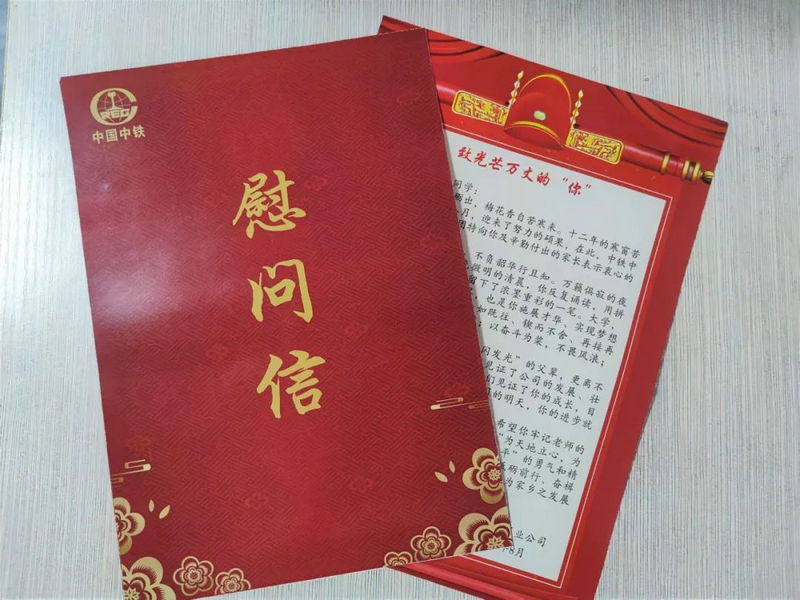 CREC
中国中铁
慰问信
致光芒万丈的“你”
同学：
砺出，梅花香自苦寒来。十二年的寒窗苦
月，迎来了努力的硕果，在此，中铁中
团特向你及辛勤付出的家长表示衷心的
不负韶华行且知。万籁俱寂的夜
微明的清晨，你反复诵读，用拼
留下了浓墨重彩的一笔。大学，
，也是你施展才华、实现梦想
如既往、锲而不舍、再接再
；以奋斗为桨，不畏风浪；
闪发光”的父辈，更离不
见证了公司的发展、壮
们见证了你的成长，目
的明天，你的进步就
希望你牢记老师的
“为天地立心，为
平”的勇气和精
砥砺前行、奋楫
为家乡之发展
业公司
8月